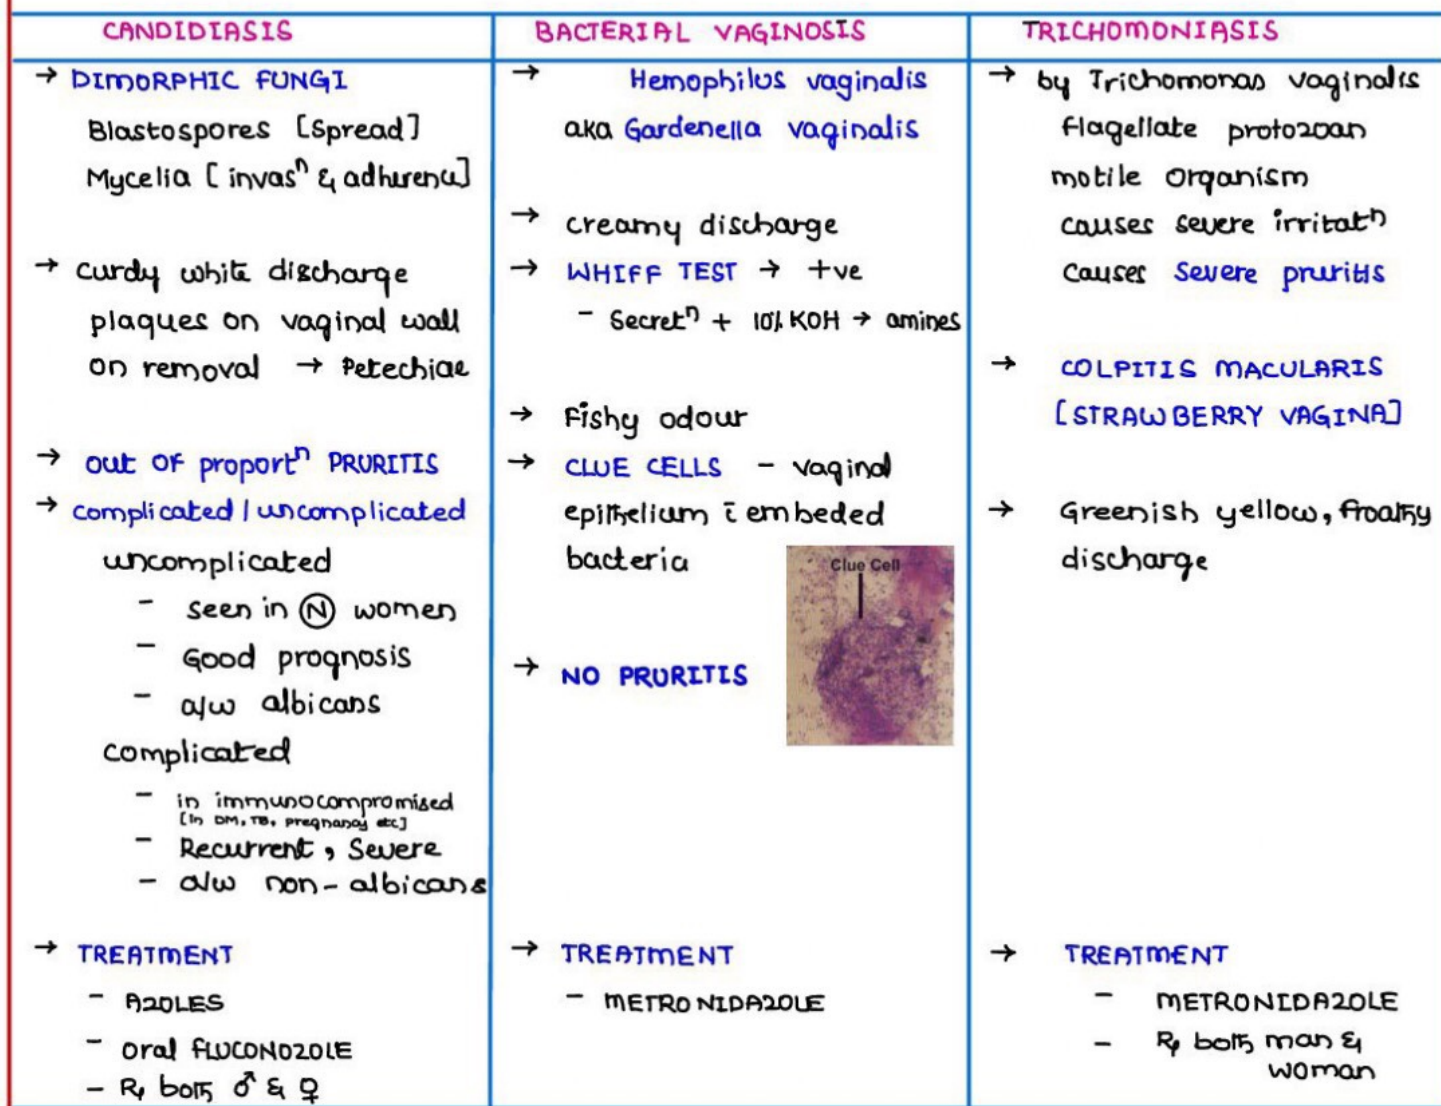 CANDIDIASIS
→ DIMORPHIC FUNGI
Blastospores [Spread]
Mycelia [invasⁿ & adherence]
→ curdy white discharge
plaques on vaginal wall
on removal → Petechiae
→ out OF proportⁿ PRURITIS
→ complicated / uncomplicated
uncomplicated
- seen in Ⓝ women
- Good prognosis
- a/w albicans
complicated
- in immunocompromised
[in DM, TB, pregnancy etc]
- Recurrent, Severe
- a/w non-albicans
→ TREATMENT
- AZOLES
- Oral FLUCONOZOLE
- Rx both ♂ & ♀
BACTERIAL VAGINOSIS
→ Hemophilus vaginalis
aka Gardenella vaginalis
→ creamy discharge
→ WHIFF TEST → +ve
- Secretⁿ + 10% KOH → amines
→ Fishy odour
→ CLUE CELLS - vaginal
epithelium c̄ embeded
bacteria
Clue Cell
→ NO PRURITIS
→ TREATMENT
- METRONIDAZOLE
TRICHOMONIASIS
→ by Trichomonas vaginalis
flagellate protozoan
motile organism
causes severe irritatⁿ
causes Severe pruritis
→ COLPITIS MACULARIS
[STRAWBERRY VAGINA]
→ Greenish yellow, froathy
discharge
→ TREATMENT
- METRONIDAZOLE
- Rx both man &
woman